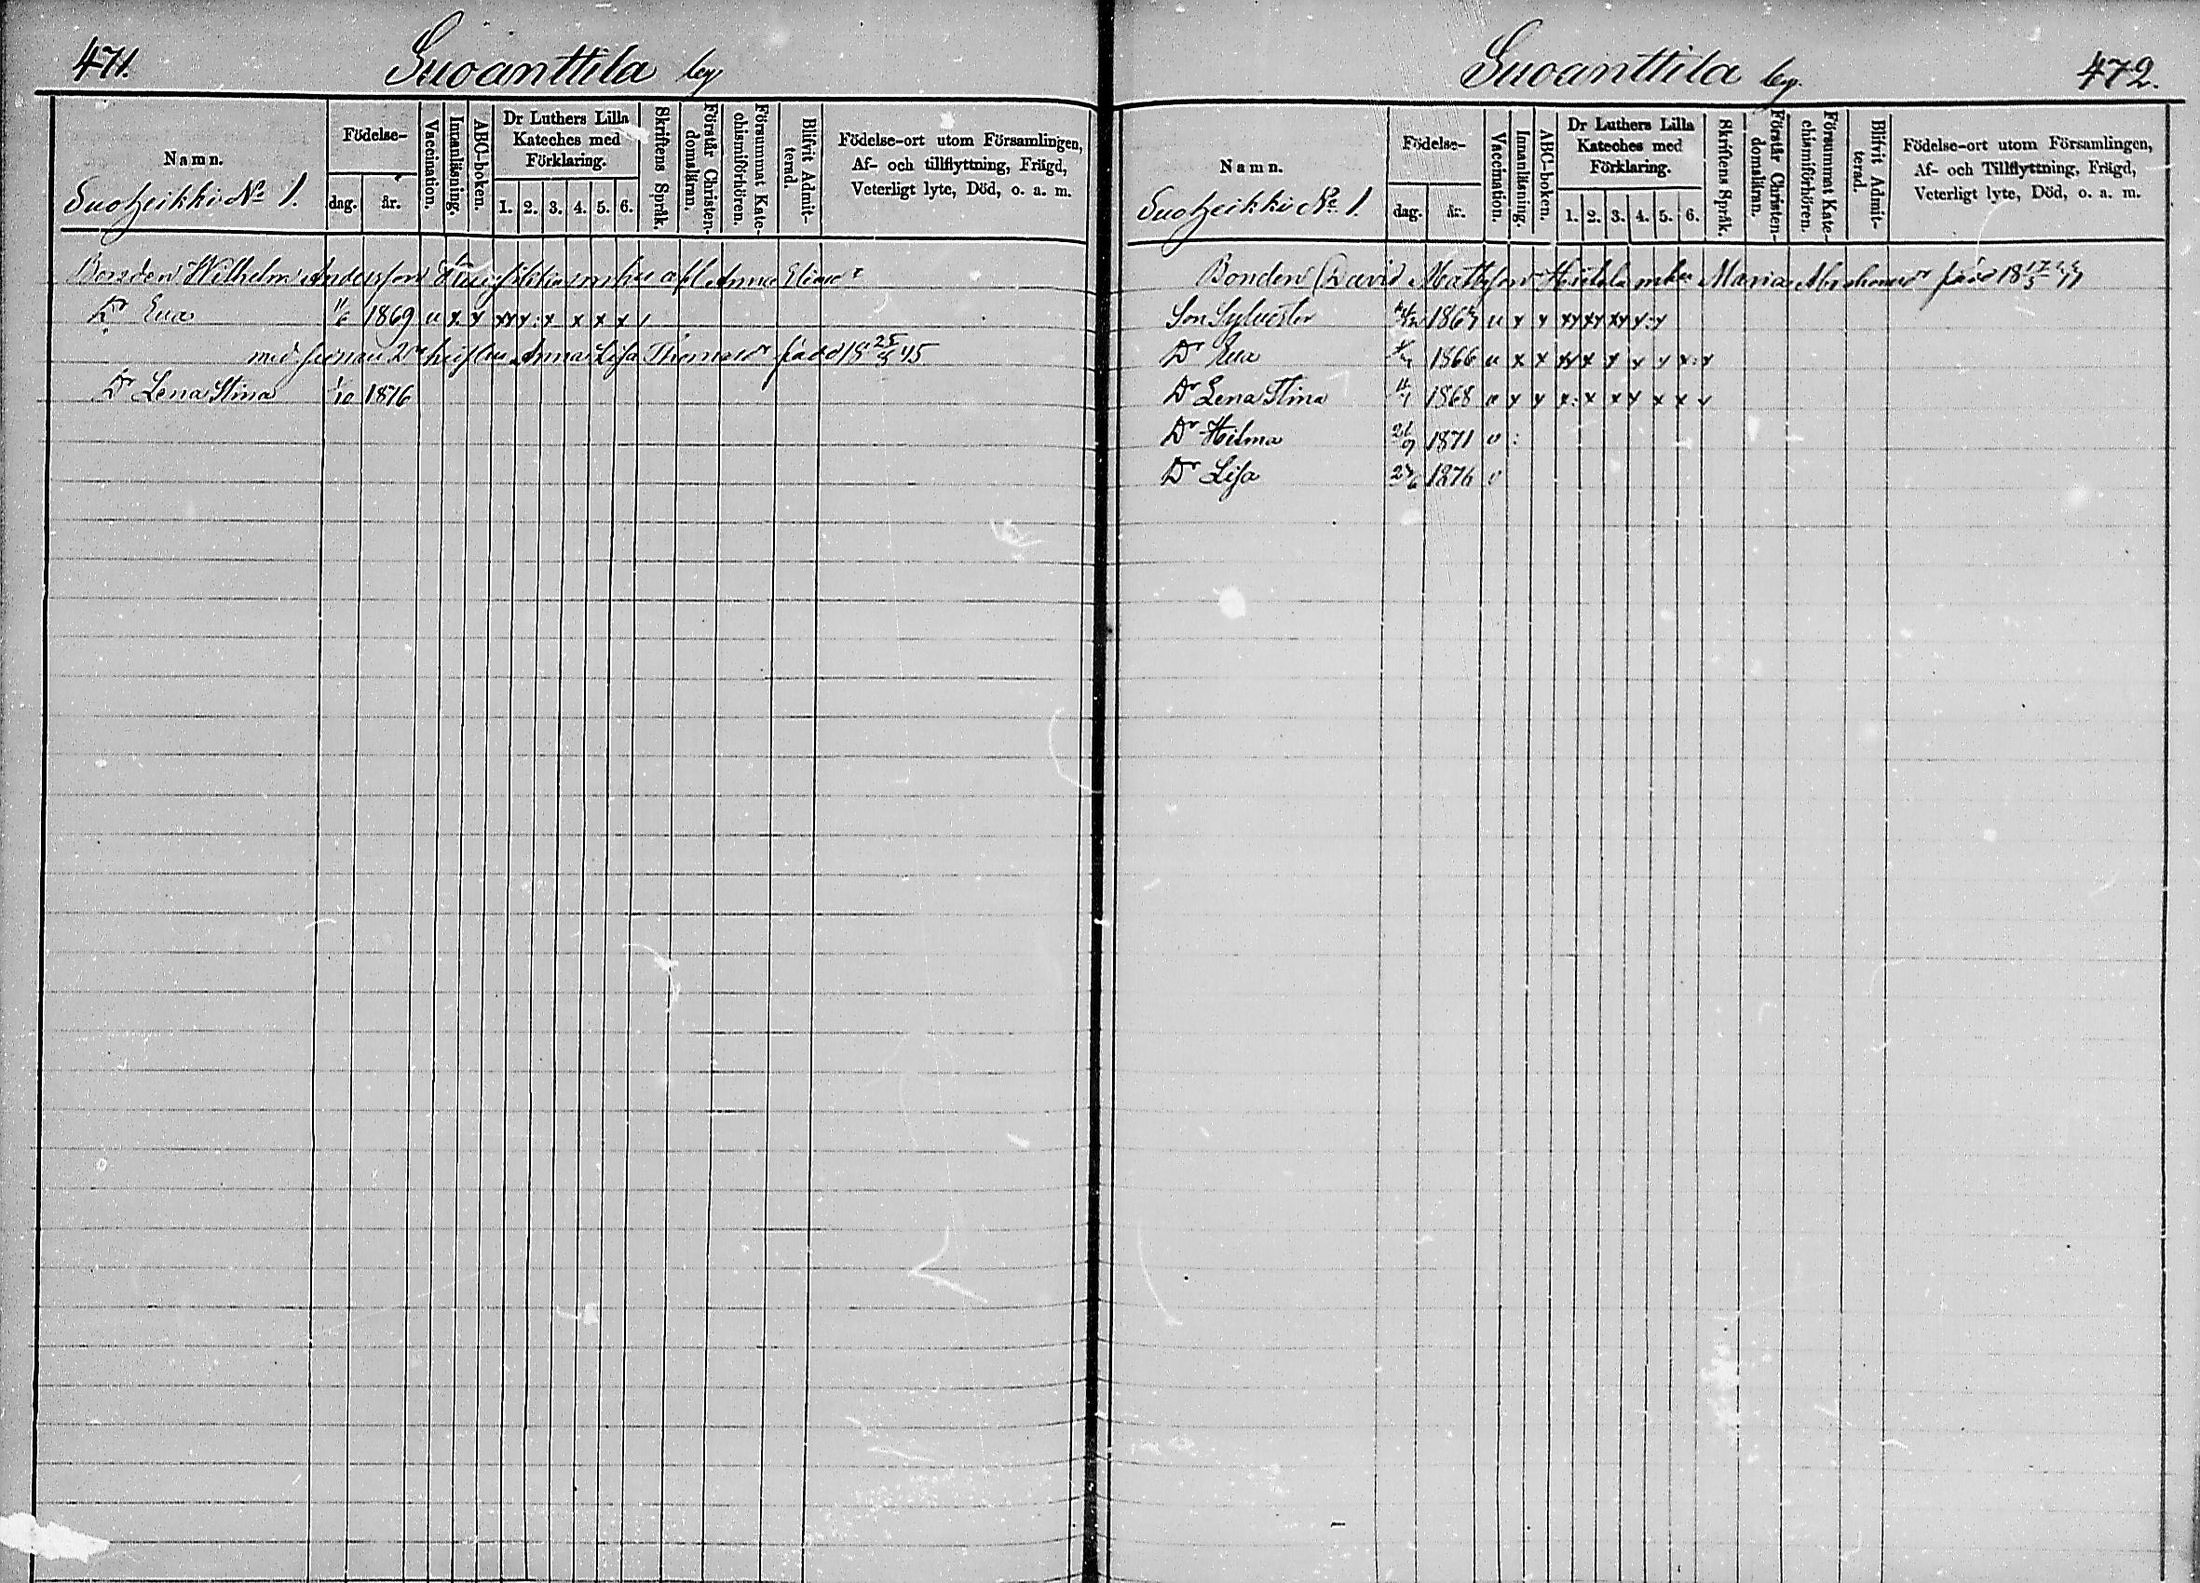 471.
Suoanttila by
Namn.
Suoheikki No 1.
Födelse-
dag.
år.
Vaccination.
Innanläsning.
ABC-boken.
Dr Luthers Lilla
Kateches med
Förklaring.
1. 2. 3. 4. 5. 6.
Skriftens Språk.
Förstår Christen-
domsläran.
Försummat Kate-
chismiförhören.
Blifvit Admit-
terad.
Födelse-ort utom Församlingen,
Af- och tillflyttning, Frägd,
Veterligt lyte, Död, o. a. m.
Bonden Wilhelm Andersson Anna
Dr Eva 11/6 1869 v x x xx x x x x x
med senare 2ra hustru Anna Lisa Thomasdr född 18 25/5 45
Dr Lena Stina 1/10 1876
Suoanttila by.
472.
Namn.
Suoheikki No 1.
Födelse-
dag.
år.
Vaccination.
Innanläsning.
ABC-boken.
Dr Luthers Lilla
Kateches med
Förklaring.
1. 2. 3. 4. 5. 6.
Skriftens Språk.
Förstår Christen-
domsläran.
Försummat Kate-
chismiförhören.
Blifvit Admit-
terad.
Födelse-ort utom Församlingen,
Af- och Tillflyttning, Frägd,
Veterligt lyte, Död, o. a. m.
Bonden David Mattsson Maria född
Son Sylvester v x x xx xx xx x x
Dr Eva 1866 v x x xx x x x x x x
Dr Lena Stina 1868 v x x x x x x x x x
Dr Hilma 21/9 1871 v
Dr Lisa 1876 v